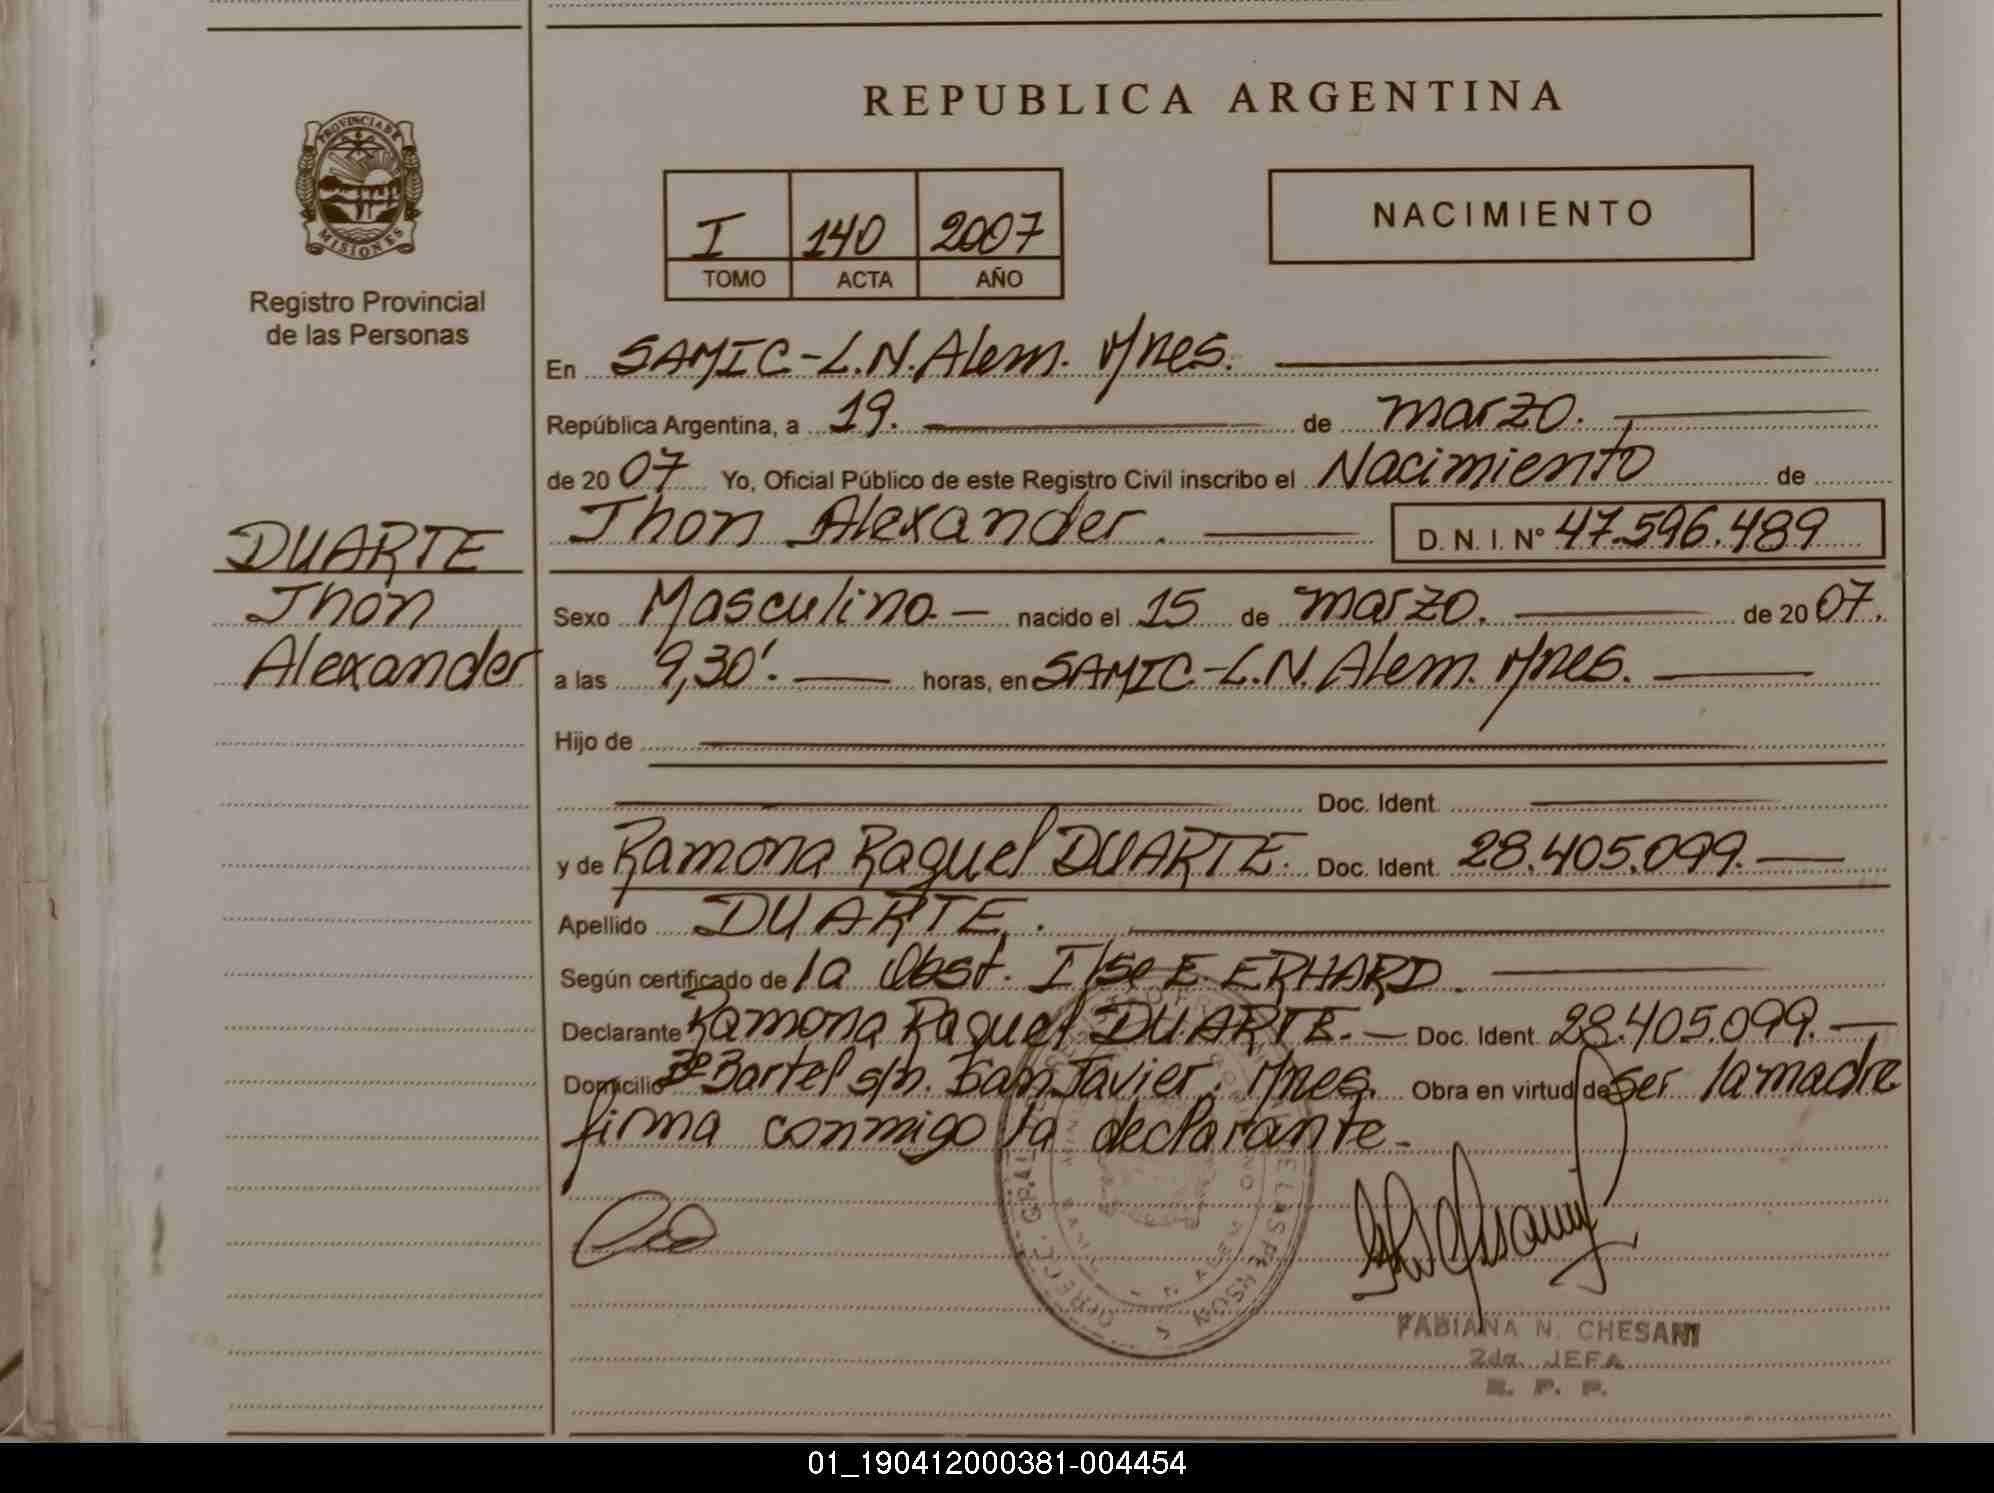 PROVINCIA DE
MISIONES
Registro Provincial
de las Personas
DUARTE
Jhon
Alexander
REPUBLICA ARGENTINA
I 140 2007
TOMO ACTA AÑO
NACIMIENTO
En SAMIC-L.N.Alem. M/nes.
República Argentina, a 19. de marzo.
de 20 07 Yo, Oficial Público de este Registro Civil inscribo el Nacimiento de
Jhon Alexander. D. N. I. Nº 47.596.489
Sexo Masculino.- nacido el 15 de marzo. de 20 07.
a las 9,30'. horas, en SAMIC.-L.N. Alem. M/nes.
Hijo de
Doc. Ident.
y de Ramona Raquel DUARTE. Doc. Ident. 28.405.099.
Apellido DUARTE.
Según certificado de la Obst. Ilse E ERHARD.
Declarante Ramona Raquel DUARTE.- Doc. Ident. 28.405.099.
Domicilio Bº Bartel s/n. San Javier. M/nes. Obra en virtud de ser la madre
firma conmigo la declarante.-
FABIANA N. CHESANI
2da. JEFA
R. P. P.
01_190412000381-004454